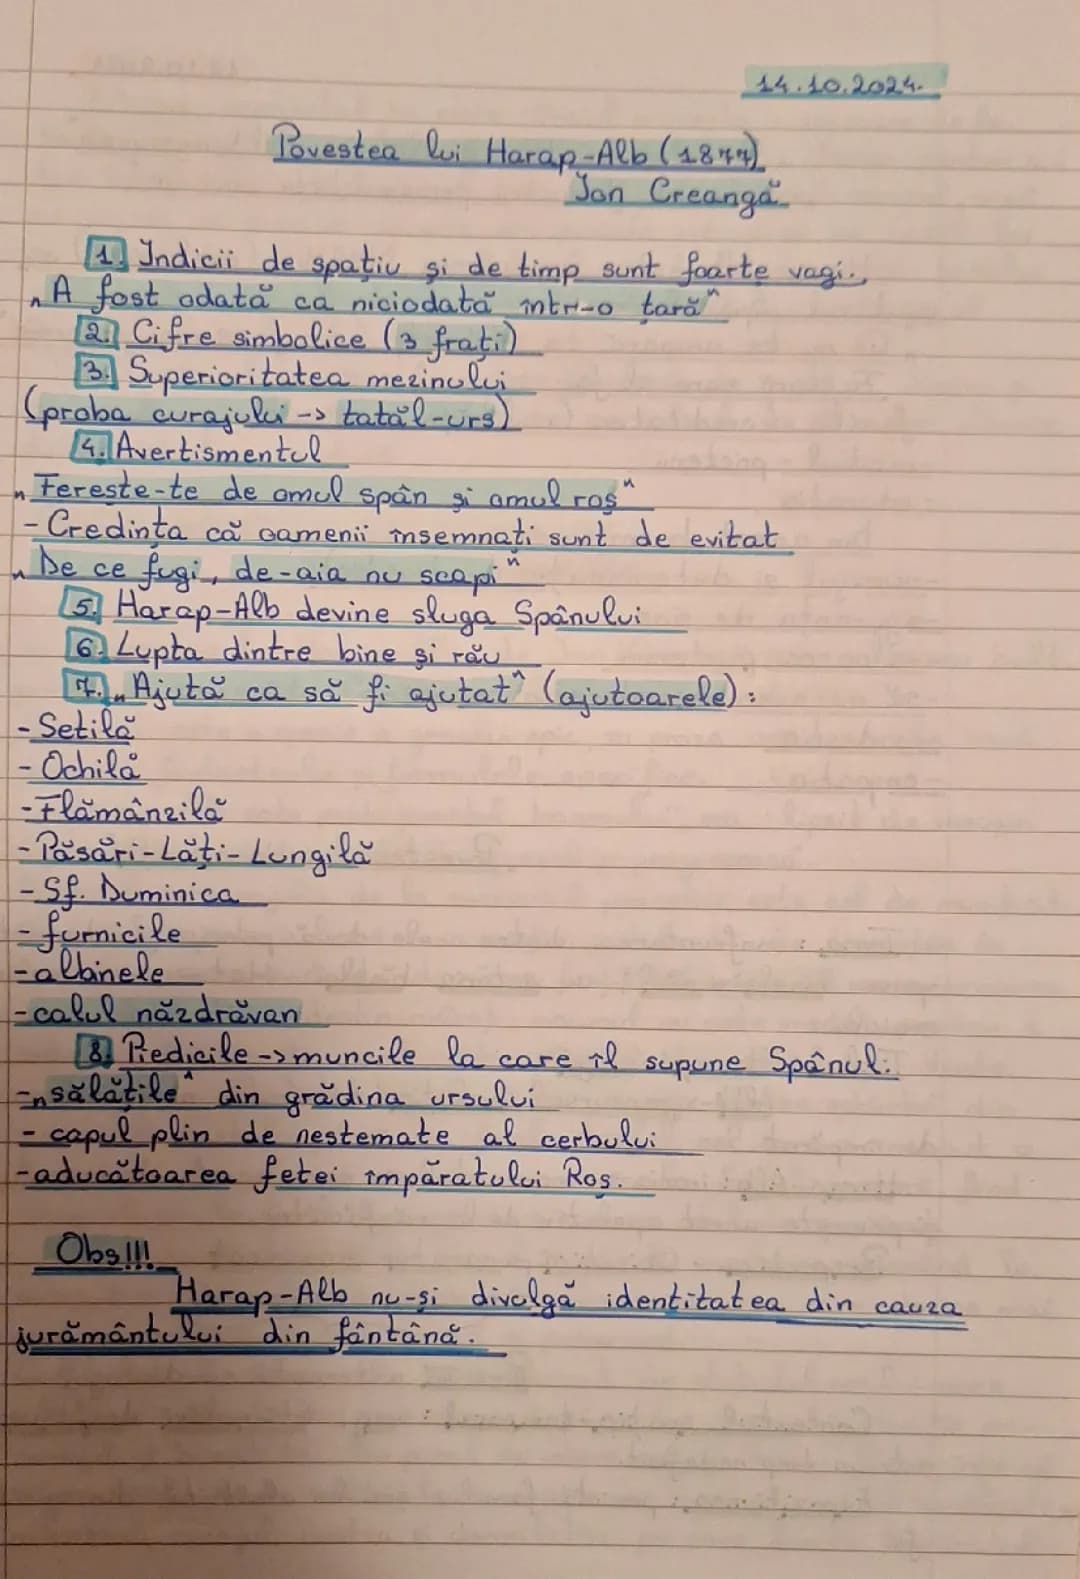 14.10.2024.
Povestea lui Harap-Alb (1877)
Ion Creangă
1. Indicii de spațiu și de timp sunt foarte vagi.
„A fost odată ca niciodată într-o țară"
2. Cifre simbolice (3 frați)
3. Superioritatea mezinului
(proba curajului -> tatăl-urs)
4. Avertismentul
„Ferește-te de omul spân și omul roș"
- Credința că oamenii însemnați sunt de evitat
„De ce fugi, de-aia nu scapi"
5. Harap-Alb devine sluga Spânului
6. Lupta dintre bine și rău
7. „Ajută ca să fi ajutat" (ajutoarele):
- Setilă
- Ochilă
- Flămânzilă
- Păsări-Lăți-Lungilă
- Sf. Duminica
- furnicile
- albinele
- calul năzdrăvan
8. Piedicile -> muncile la care îl supune Spânul:
- „sălățile" din grădina ursului
- capul plin de nestemate al cerbului
- aducătoarea fetei împăratului Roș.
Obs!!!
Harap-Alb nu-și divulgă identitatea din cauza
jurământului din fântână.